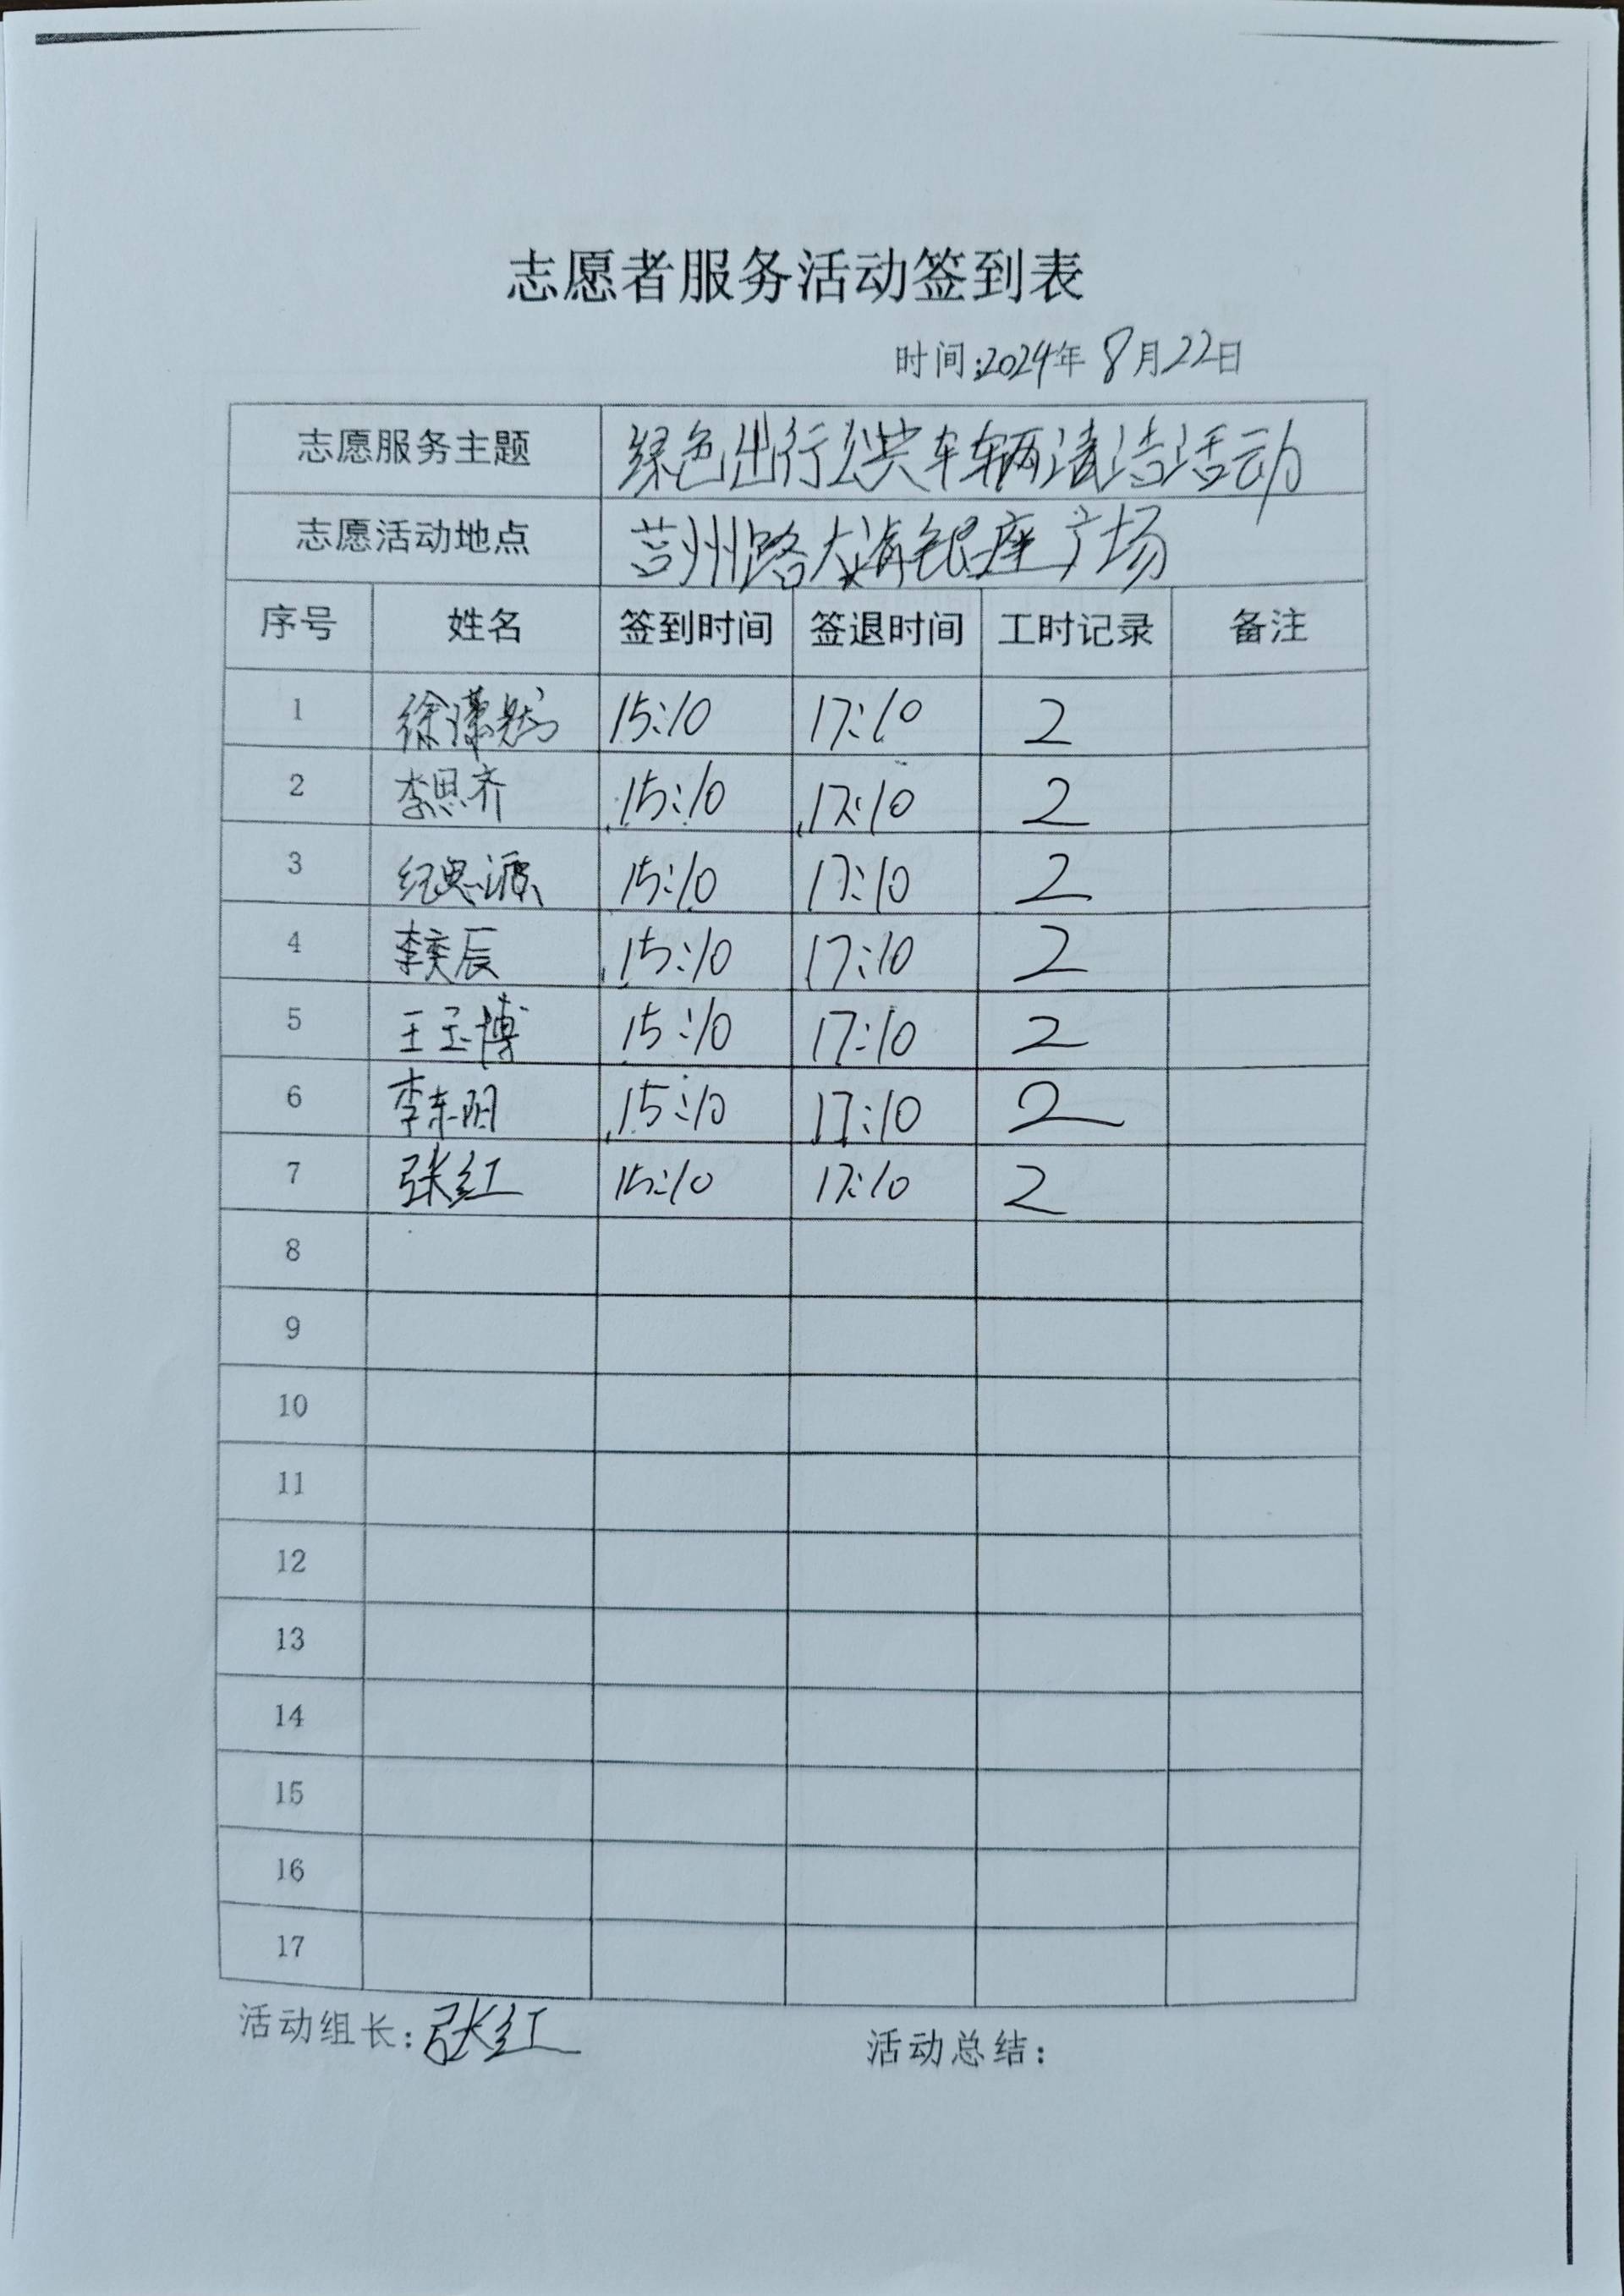 志愿者服务活动签到表
时间:2024年8月22日
志愿服务主题 绿色出行公共车辆清洁活动
志愿活动地点 莒州路大润银座广场
序号 姓名 签到时间 签退时间 工时记录 备注
1 徐潇然 15:10 17:10 2
2 李思齐 15:10 17:10 2
3 纪思源 15:10 17:10 2
4 李奕辰 15:10 17:10 2
5 王玉博 15:10 17:10 2
6 李东阳 15:10 17:10 2
7 张红 15:10 17:10 2
8
9
10
11
12
13
14
15
16
17
活动组长:张红 活动总结: